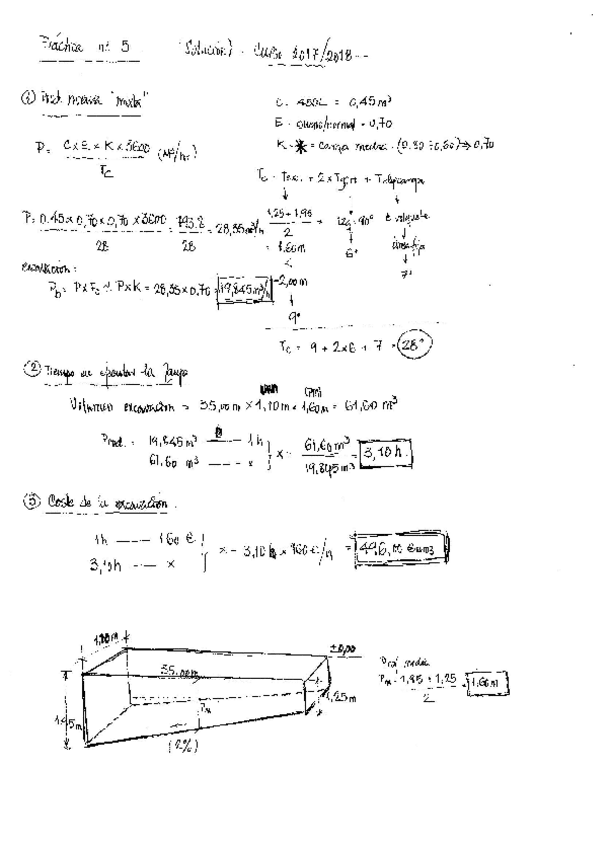 Práctica nº 5 (Solución) - Curso 2017/2018 --
① Prod. media "
C. 450L = 0,45 m³
E = bueno/normal = 0,70
K = = carga media. (0.80 ÷ 0,60) ⇒ 0,70
P = C x E x K x 3600 / Tc (m³/hr)
Tc = Texc. + 2 x Tgiro + Tdescarga
P = 0.45 x 0,70 x 0,70 x 3600 / 28 = 793.8 / 28 = 28,35 m³/h
1,25 + 1,95 / 2 = 1.60 m < 2,00 m
9"
90°
6"
7"
excavación:
Pb = P x Fc ≈ P x K = 28,35 x 0,70 = 19,845 m³/h
Tc = 9 + 2x6 + 7 = 28"
② Tiempo en ejecutar la zanja
Volumen excavación = 35,00 m x 1,10 m x 1,60 m = 61,60 m³
(Pm)
Prod. = 19,845 m³ —— 1 h
61.60 m³ ---- x
x = 61,60 m³ / 19,845 m³ = 3,10 h.
③ Coste de la excavación.
1h --- 160 €
3,10h --- x
x = 3,10 h x 160 €/h = 496,00 €
1,10 m
35.00 m
±0,00
1,25 m
Pm
1.95 m
(2%)
Prof. media
Pm = 1,95 + 1,25 / 2 = 1.60 m